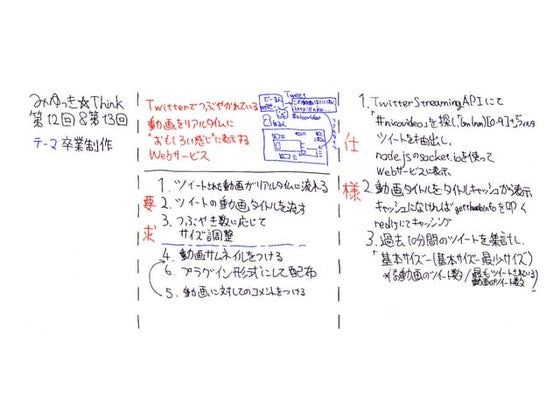 みゆっき☆Think
第12回&第13回
テーマ 卒業制作
Twitterでつぶやかれている
動画をリアルタイムに
"おもしろい感じ"に表示する
Webサービス
Tweet
#nicovideo
要求
1. ツイートされた動画がリアルタイムに流れる
2. ツイートの動画タイトルを流す
3. つぶやき数に応じて
サイズ調整
4. 動画サムネイルをつける
6. プラグイン形式にして配布
5. 動画に対してのコメントをつける
仕様
1. TwitterStreamingAPIにて
「#nicovideo」を探し、
ツイートを抽出し、
node.jsのsocket.ioを使って
Webサービスに表示
2. 動画タイトルをタイトルキャッシュから表示
キャッシュになければgetthumbinfoを叩く
redisにてキャッシング
3. 過去10分間のツイートを集計し、
「基本サイズー(基本サイズー最少サイズ)
動画のツイート数/最もツイートされている
動画のツイート数